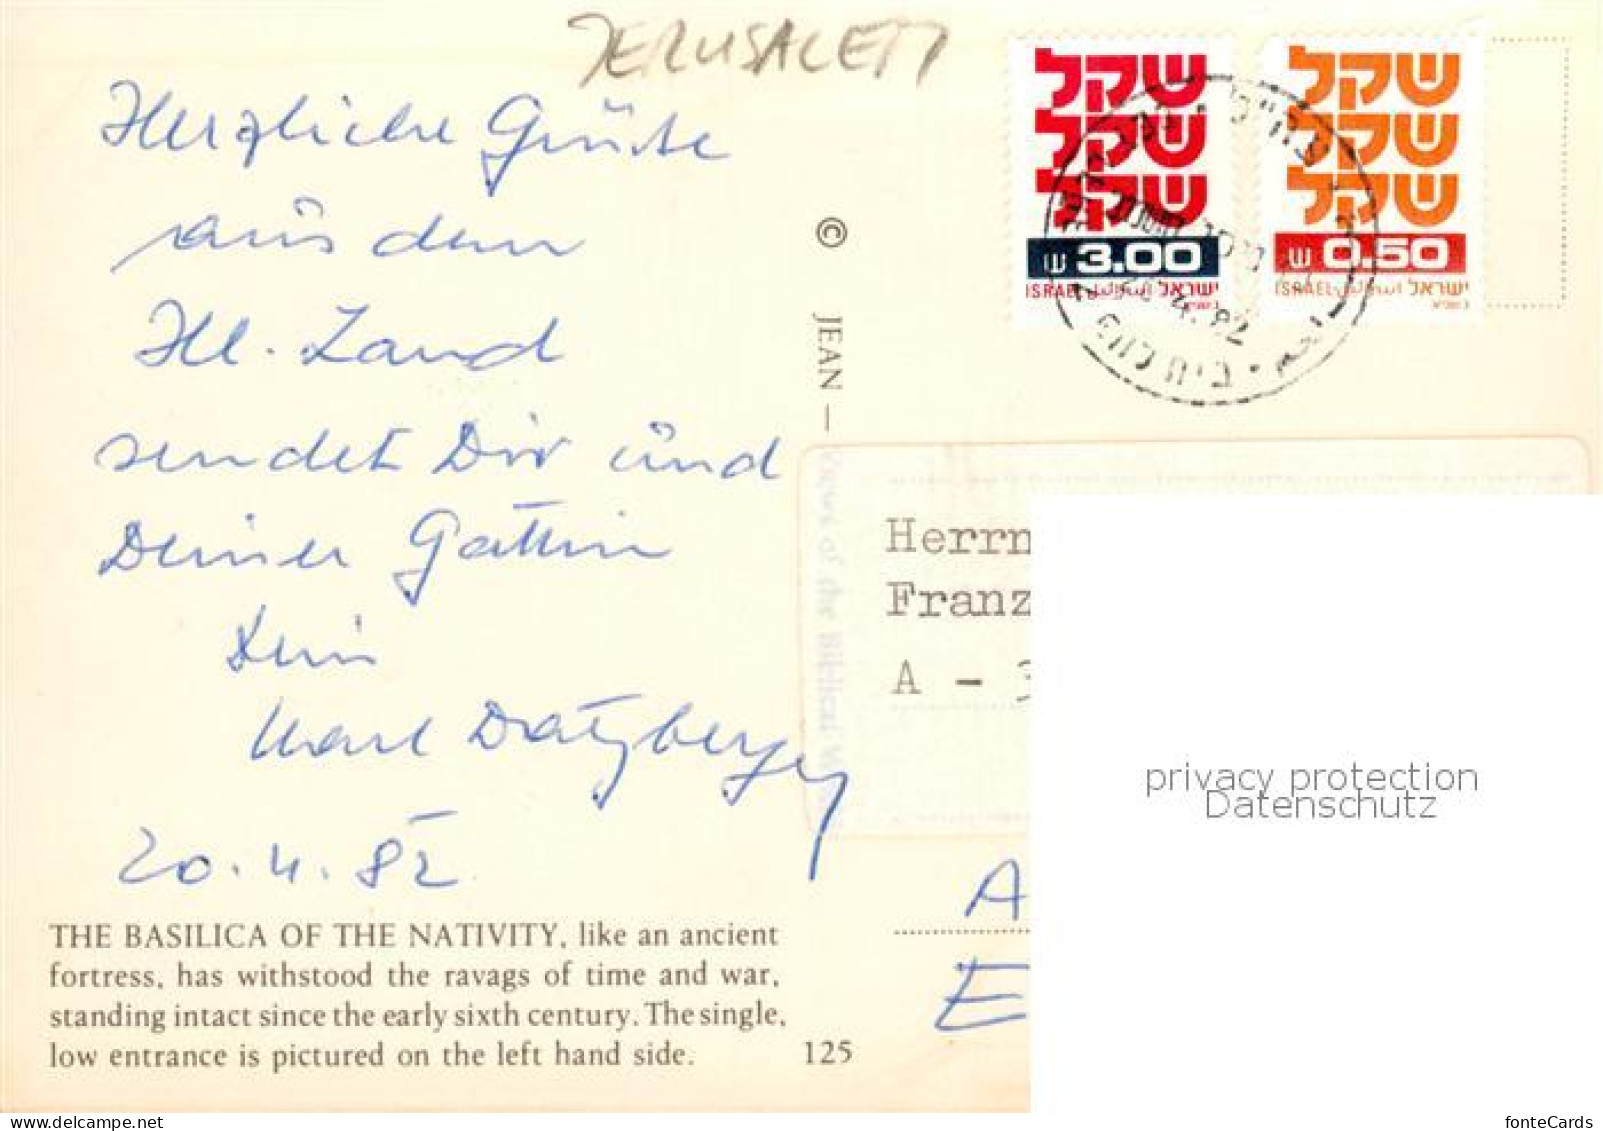 JERUSALEM
Herzliche Grüße
aus dem
Hl. Land
sendet Dir und
Deiner Gattin
Dein
Karl Datzberger
20.4.82
THE BASILICA OF THE NATIVITY, like an ancient
fortress, has withstood the ravags of time and war,
standing intact since the early sixth century. The single,
low entrance is pictured on the left hand side.
125
© JEAN — Views of the Biblical W
שקל
שקל
שקל
ש 3.00
ISRAEL اسرائيل ישראל
שקל
שקל
שקל
ש 0.50
ISRAEL اسرائيل ישראל
Herrn
Franz
A - 3
A
E
privacy protection
Datenschutz
www.delcampe.net
fonteCards